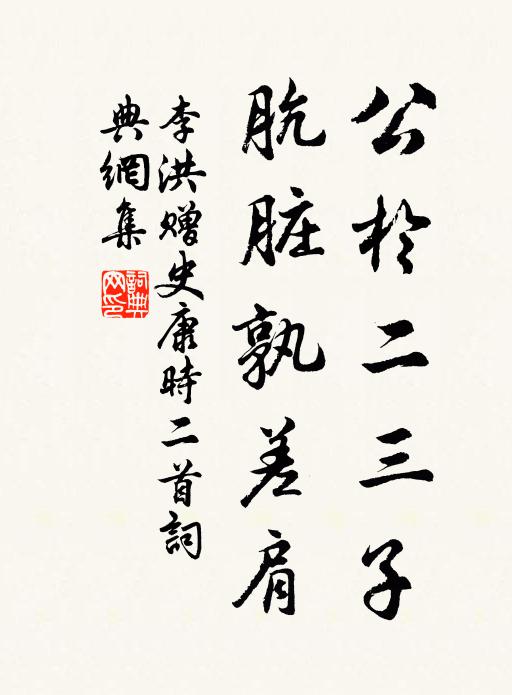 公於二三子
肮脏孰差肩
李洪赠史康時二首詞
典網集
詞典網印